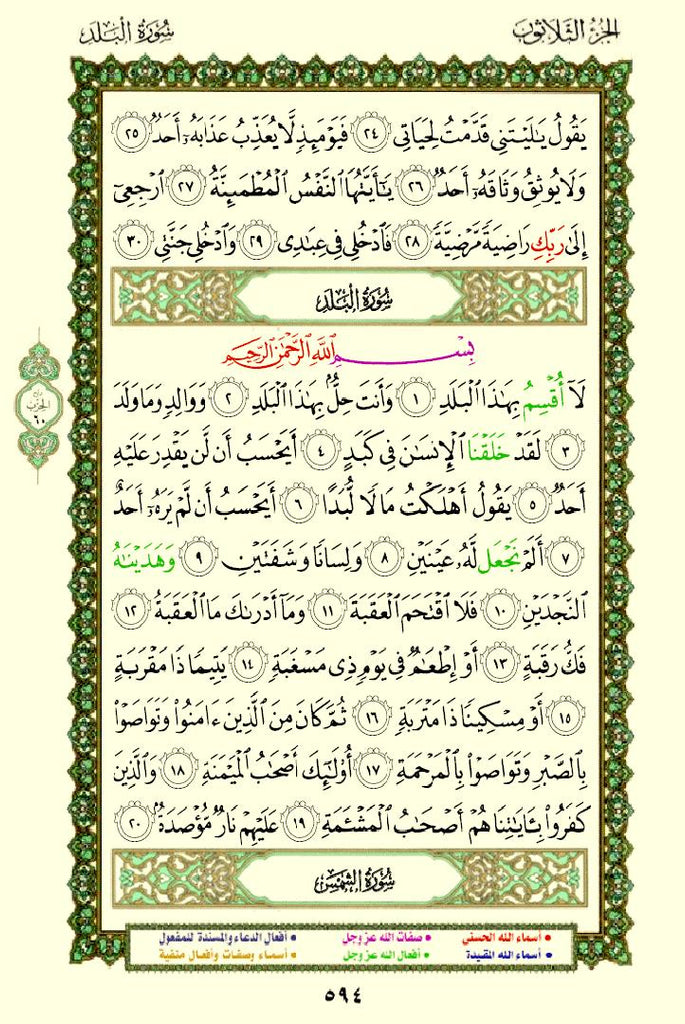 الجزء الثلاثون
سورة البلد
يَقُولُ يَٰلَيْتَنِى قَدَّمْتُ لِحَيَاتِى ٢٤ فَيَوْمَئِذٍ لَّا يُعَذِّبُ عَذَابَهُۥٓ أَحَدٌ ٢٥
وَلَا يُوثِقُ وَثَاقَهُۥٓ أَحَدٌ ٢٦ يَٰٓأَيَّتُهَا ٱلنَّفْسُ ٱلْمُطْمَئِنَّةُ ٢٧ ٱرْجِعِىٓ
إِلَىٰ رَبِّكِ رَاضِيَةً مَّرْضِيَّةً ٢٨ فَٱدْخُلِى فِى عِبَٰدِى ٢٩ وَٱدْخُلِى جَنَّتِى ٣٠
سُورَةُ البَلَدِ
بِسْمِ ٱللَّهِ ٱلرَّحْمَٰنِ ٱلرَّحِيمِ
لَآ أُقْسِمُ بِهَٰذَا ٱلْبَلَدِ ١ وَأَنتَ حِلٌّۢ بِهَٰذَا ٱلْبَلَدِ ٢ وَوَالِدٍ وَمَا وَلَدَ
٣ لَقَدْ خَلَقْنَا ٱلْإِنسَٰنَ فِى كَبَدٍ ٤ أَيَحْسَبُ أَن لَّن يَقْدِرَ عَلَيْهِ
أَحَدٌ ٥ يَقُولُ أَهْلَكْتُ مَالًا لُّبَدًا ٦ أَيَحْسَبُ أَن لَّمْ يَرَهُۥٓ أَحَدٌ
٧ أَلَمْ نَجْعَل لَّهُۥ عَيْنَيْنِ ٨ وَلِسَانًا وَشَفَتَيْنِ ٩ وَهَدَيْنَٰهُ
ٱلنَّجْدَيْنِ ١٠ فَلَا ٱقْتَحَمَ ٱلْعَقَبَةَ ١١ وَمَآ أَدْرَىٰكَ مَا ٱلْعَقَبَةُ ١٢
فَكُّ رَقَبَةٍ ١٣ أَوْ إِطْعَٰمٌ فِى يَوْمٍ ذِى مَسْغَبَةٍ ١٤ يَتِيمًا ذَا مَقْرَبَةٍ
١٥ أَوْ مِسْكِينًا ذَا مَتْرَبَةٍ ١٦ ثُمَّ كَانَ مِنَ ٱلَّذِينَ ءَامَنُوا۟ وَتَوَاصَوْا۟
بِٱلصَّبْرِ وَتَوَاصَوْا۟ بِٱلْمَرْحَمَةِ ١٧ أُو۟لَٰٓئِكَ أَصْحَٰبُ ٱلْمَيْمَنَةِ ١٨ وَٱلَّذِينَ
كَفَرُوا۟ بِـَٔايَٰتِنَا هُمْ أَصْحَٰبُ ٱلْمَشْـَٔمَةِ ١٩ عَلَيْهِمْ نَارٌ مُّؤْصَدَةٌۢ ٢٠
سُورَةُ الشَّمْسِ
ربع
الحزب
٦٠
• أسماء الله الحسنى • صفات الله عز وجل • أفعال الدعاء والمسندة للمفعول
• أسماء الله المقيدة • أفعال الله عز وجل • أسماء وصفات وأفعال منفية
٥٩٤